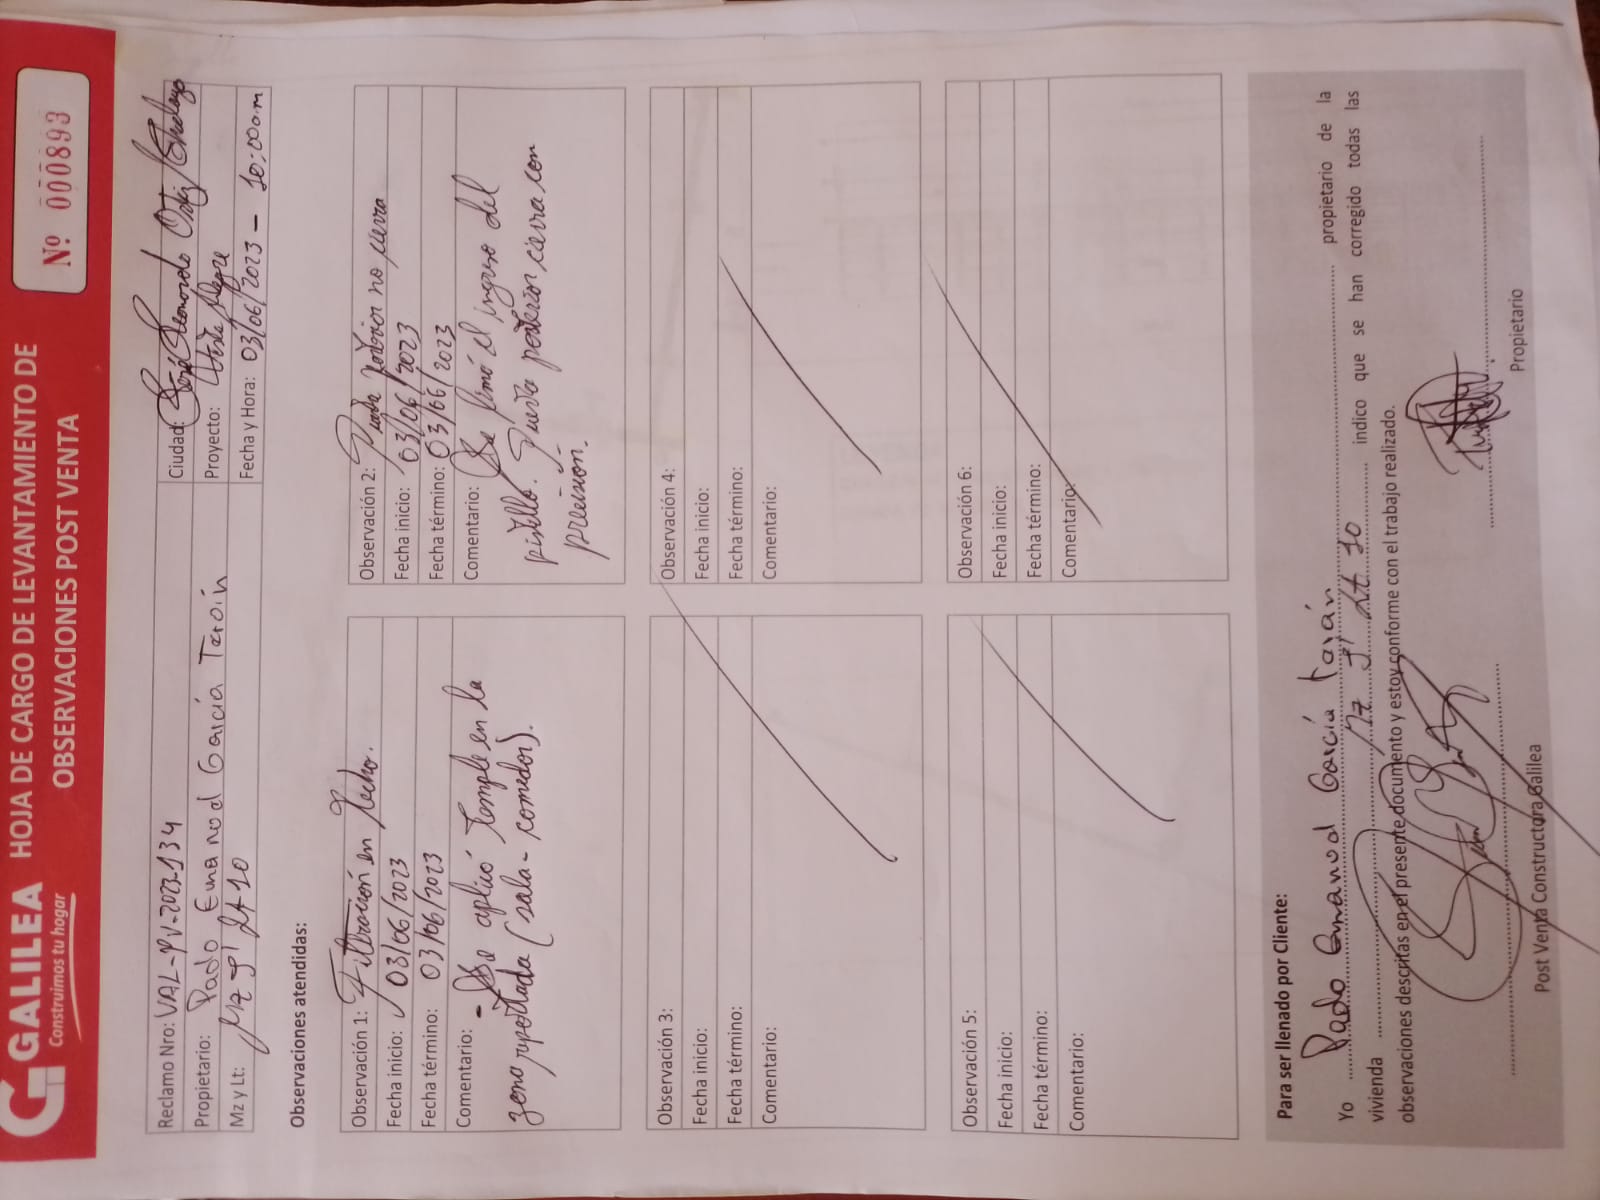 GALILEA
Construimos tu hogar
HOJA DE CARGO DE LEVANTAMIENTO DE
OBSERVACIONES POST VENTA
Nº 000893
Reclamo Nro: VAL-PV-2023-134
Ciudad: José Leonardo Ortiz / Chiclayo
Propietario: Pado Emanod García Tarín
Proyecto: Alegre
Mz y Lt: Mz J' Lt 10
Fecha y Hora: 03/06/2023 - 10:00am
Observaciones atendidas:
Observación 1: Filtración en Techo.
Fecha inicio: 03/06/2023
Fecha término: 03/06/2023
Comentario: - Se aplicó temple en la
zona reportada (sala - comedor).
Observación 2: Puerta posterior no cierra
Fecha inicio: 03/06/2023
Fecha término: 03/06/2023
Comentario: Se limó el ingreso del
pistillo. Puerta posterior cierra con
precisión.
Observación 3:
Fecha inicio:
Fecha término:
Comentario:
Observación 4:
Fecha inicio:
Fecha término:
Comentario:
Observación 5:
Fecha inicio:
Fecha término:
Comentario:
Observación 6:
Fecha inicio:
Fecha término:
Comentario:
Para ser llenado por Cliente:
Yo Pado Emanod García Tarán propietario de la
vivienda Mz J' Lt 10 indico que se han corregido todas las
observaciones descritas en el presente documento y estoy conforme con el trabajo realizado.
Post Venta Constructora Galilea
Propietario